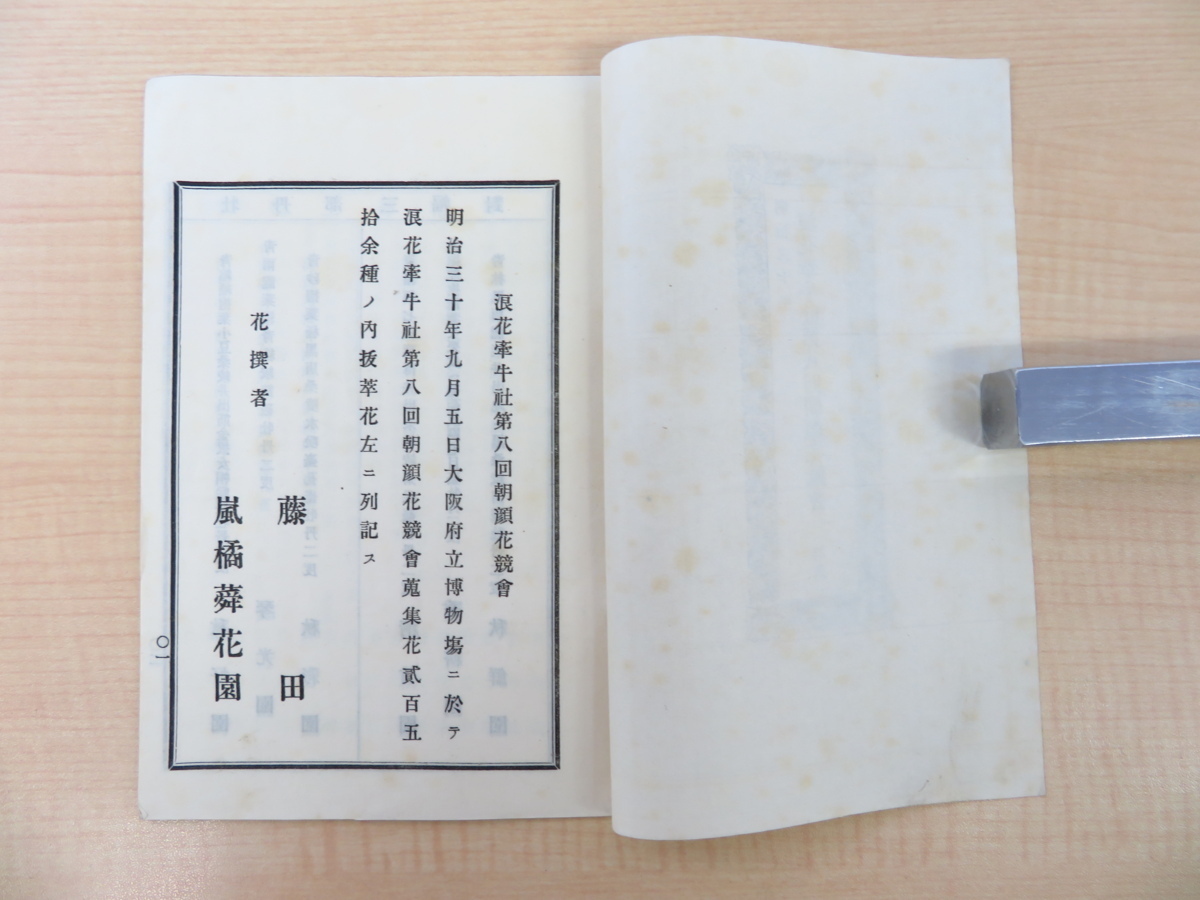 浪花牽牛社第八回朝顔花競會
明治三十年九月五日大阪府立博物塲ニ於テ
浪花牽牛社第八回朝顔花競會蒐集花貳百五
拾余種ノ內拔萃花左ニ列記ス
花撰者
藤田
嵐橘蕣花園
〇一